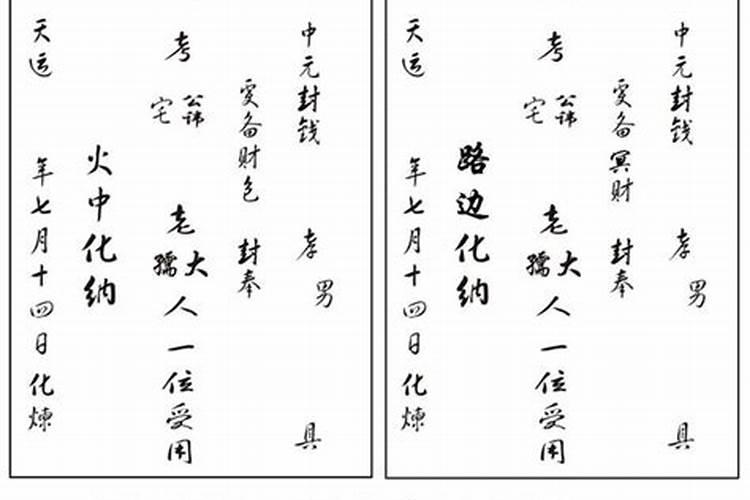 中元封钱 孝男 具
爰备财色 封奉
考 公讳宅 老大孺人一位受用
火中化纳
天运 年七月十四日化煉
中元封钱 孝男 具
爰备冥财 封奉
考 公讳宅 老大孺人一位受用
路边化纳
天运 年七月十四日化煉